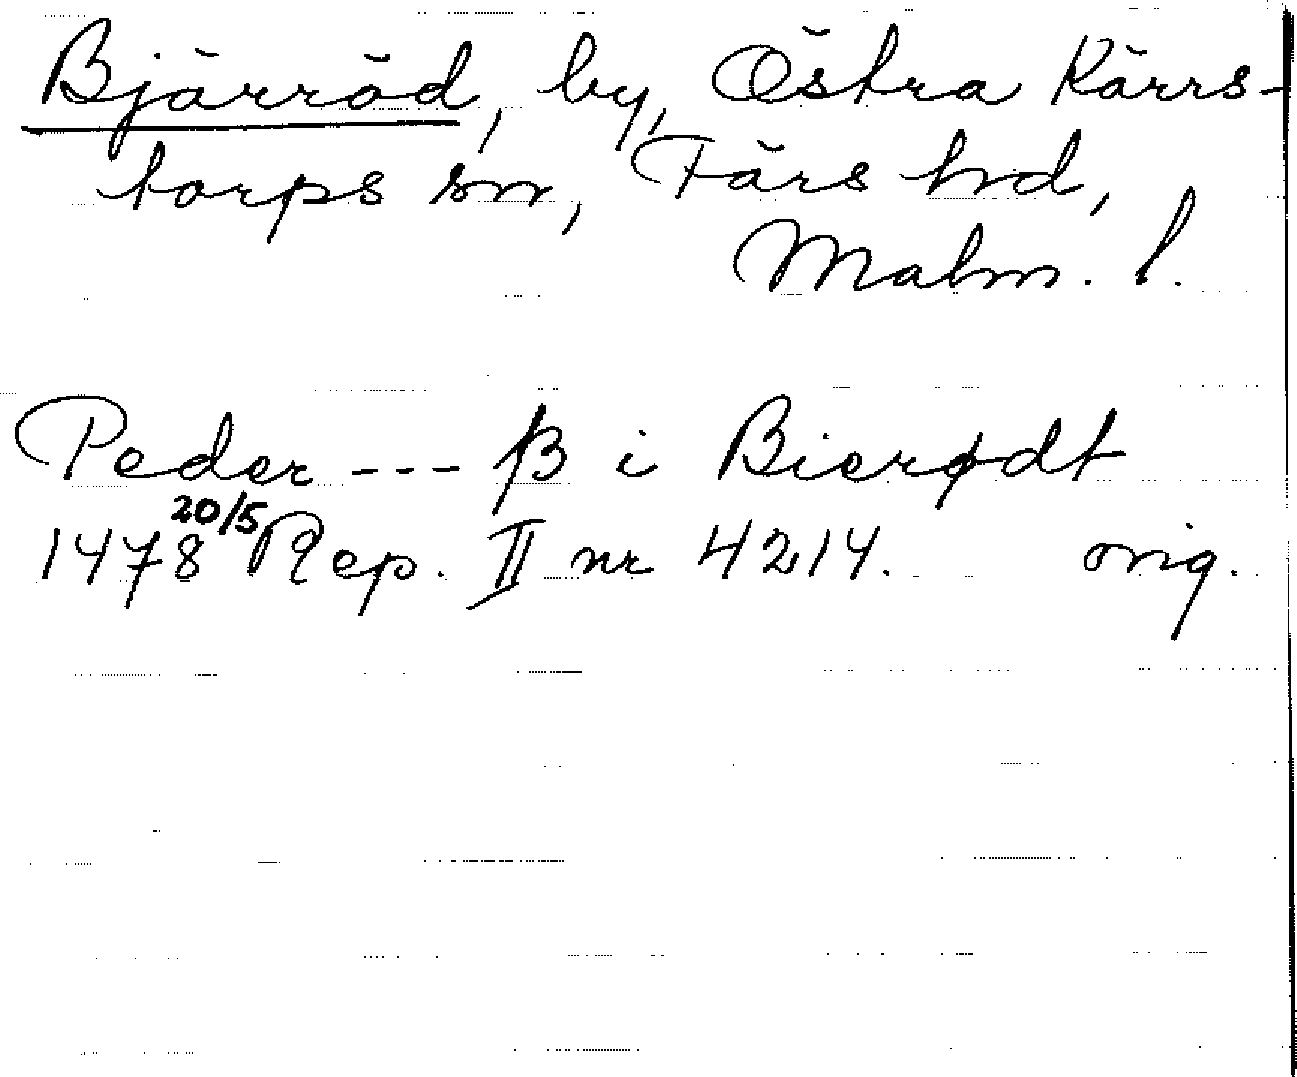 Bjärröd, by, Östra Kärrs-
torps sn, Färs hd,
Malm. l.
Peder --- ß i Bierødt
1478 20/5 Rep. II nr 4214. orig.